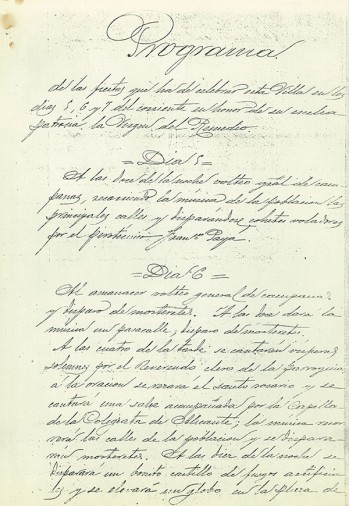 Programa.
de las fiestas que ha de celebrar esta Villa en los
días 5, 6 y 7 del corriente en honor de su excelsa
patrona la Virgen del Remedio.
= Día 5 =
A las doce de la noche volteo gral de cam-
panas, recorriendo la música de la población las
principales calles y disparandose cohetes voladores
por el pirotécnico Franco Paya.
= Día 6 =
Al amanecer volteo general de campanas
y disparo de morteretes. A las dará la
música un pasacalle, disparo de morteretes.
A las cuatro de la tarde se cantarán vísperas
solemnes por el Reverendo clero de la Parroquia
á la oracion se rezará el santo rosario y se
cantará una salve acompañada por la Capilla
de la Colegiata de Alicante; la música
rá las calles de la población y se disparará
morteretes. A las diez de la noche se
disparará un bonito castillo de fuegos artificia
les y se elevará un globo en la plaza de